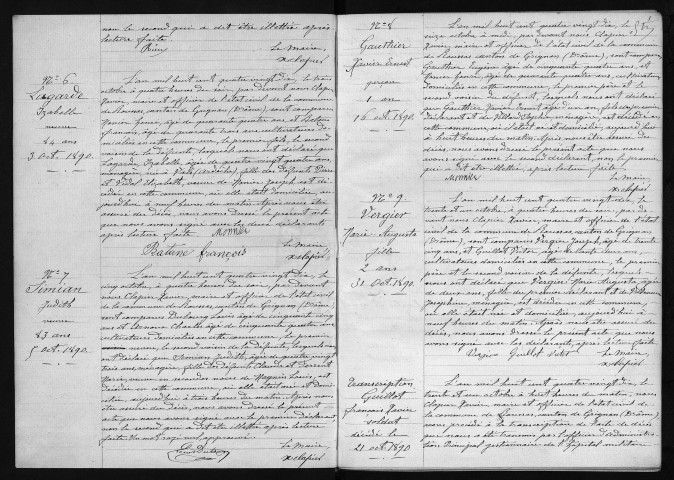 non le second qui a dit être illettré après
lecture faite.
Le Maire,
X Clapier
N° 6
Lagarde
Isabelle
veuve
84 ans
3 Oct. 1890.
L'an mil huit cent quatre vingt dix, le trois
octobre à quatre heures du soir, par devant nous Clapier
Xavier, maire et officier de l'état civil de la commune
de Rousset, canton de Grignan (Drôme), sont comparus
Monier
Xavier, âgé de quarante quatre ans et
François, âgé de quarante trois ans cultivateurs do-
miciliés en cette commune, le premier fils, le second
voisin de la défunte, lesquels nous ont déclaré que
Lagarde Isabelle, âgée de quatre vingt quatre ans,
ménagère, née à (Ardèche), fille des défunts Pierre
et Vidal Elisabeth, veuve de Monier Joseph est dé-
cédée en cette commune, où elle était domiciliée, au-
jourd'hui à neuf heures du matin. Après nous être
assuré du décès, nous avons dressé le présent acte
que nous avons signé avec les deux déclarants
après lecture faite. Monier
Le Maire,
X Clapier
François
N° 7
Simian
Judith
veuve
83 ans
5 oct. 1890.
L'an mil huit cent quatre vingt dix, le
cinq octobre, à quatre heures du soir, par devant
nous Clapier Xavier, maire et officier de l'état civil
de la commune de Rousset, canton de Grignan (Drôme)
sont comparus Louis, âgé de cinquante cinq
ans et Charles âgé de cinquante quatre ans
cultivateurs domiciliés en cette commune, le premier
voisin, le second voisin de la défunte, lesquels nous
ont déclaré que Simian Judith, âgée de quatre vingt
trois ans, ménagère, fille des défunts Claude et
Marie, veuve en secondes noces de Louis, est
décédée en cette commune, où elle était née et domi-
ciliée, aujourd'hui à trois heures du matin. Après nous
être assuré du décès, nous avons dressé le présent
acte que nous avons signé avec le premier déclarant,
non le second qui a dit être illettré après lecture
faite.
Le Maire,
X Clapier
N° 8
Gauthier
Xavier Ernest
garçon
1 an
16 oct. 1890.
L'an mil huit cent quatre vingt dix, le
seize octobre à midi, par devant nous Clapier
Xavier, maire et officier de l'état civil de la commune
de Rousset, canton de Grignan (Drôme), sont comparus
Gauthier Eugène âgé de cinquante ans, et
Monier Xavier, âgé de quarante quatre ans, cultivateurs
domiciliés en cette commune, le premier père et le
second voisin du défunt, lesquels nous ont déclaré
que Gauthier Xavier Ernest âgé d'un an, fils du premier
déclarant et de Sophie ménagère, est décédé en
cette commune, où il était né et domicilié, aujourd'hui
à huit heures du matin. Après nous être assuré du
décès nous avons dressé le présent acte que nous
avons signé avec le second déclarant, non le premier
qui a dit être illettré, après lecture faite.
Monier
Le Maire,
X Clapier
N° 9
Vergier
Marie Augusta
fille
2 ans
31 Oct. 1890.
L'an mil huit cent quatre vingt dix, le
trente et un octobre, à quatre heures du soir, par de-
vant nous Clapier Xavier, maire et officier de l'état
civil de la commune de Rousset, canton de Grignan
(Drôme), sont comparus Vergier Joseph, âgé de trente
cinq ans, et Guillot Victor âgé de trente ans,
cultivateurs domiciliés en cette commune, le premier
père et le second voisin de la défunte, lesquels
nous ont déclaré que Vergier Marie Augusta, âgée
de deux ans, fille du premier déclarant et de
Joséphine ménagère, est décédée en cette commune,
où elle était née et domiciliée, aujourd'hui à
neuf heures du matin. Après nous être assuré du
décès, nous avons dressé le présent acte que nous
avons signé avec les déclarants, après lecture faite
Vergier Guillot Victor
Le Maire,
X Clapier
Transcription
Guillot
François Xavier
soldat
décédé le
21 oct. 1890
L'an mil huit cent quatre vingt dix, le
trente et un octobre à huit heures du matin, nous
Clapier Xavier maire et officier de l'état civil de
la commune de Rousset, canton de Grignan (Drôme)
avons procédé à la transcription de l'acte de décès
que nous a été transmis par l'officier d'administra-
tion Principal gestionnaire de l'hôpital militaire